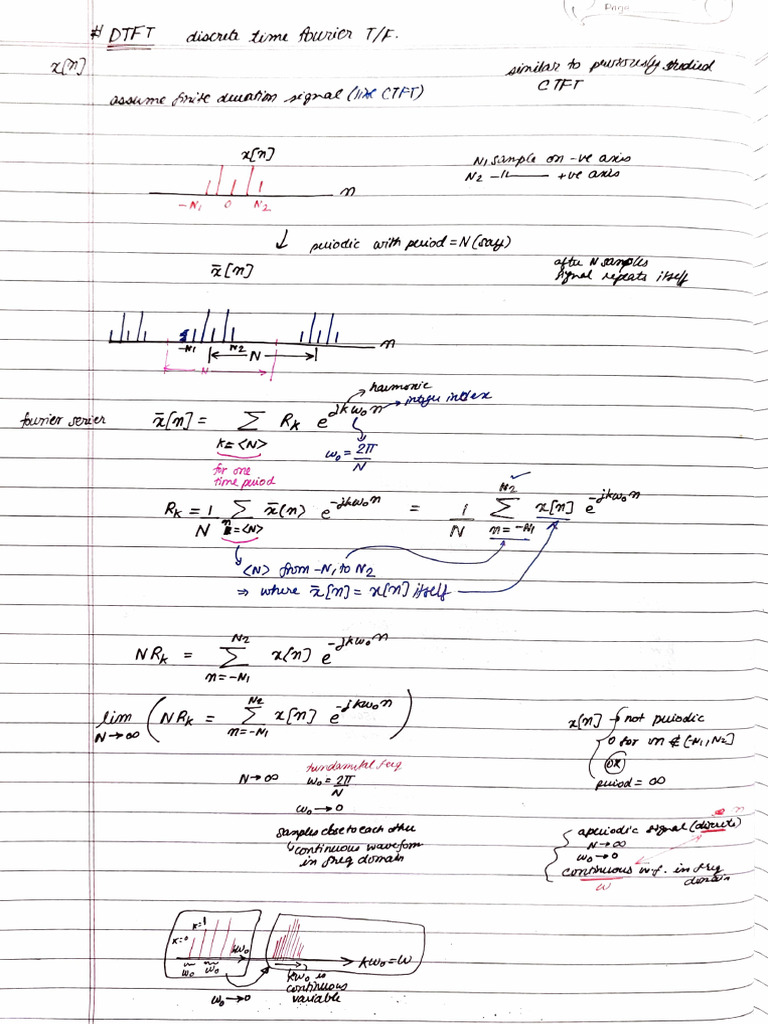 Page
# DTFT discrete time fourier T/F.
x[n]
similar to previously studied
CTFT
assume finite duration signal (like CTFT)
x[n]
n
-N1 0 N2
N1 sample on -ve axis
N2 —"— +ve axis
↓ periodic with period = N (say)
x̄[n]
after N samples
signal repeats itself
-N1 N2 n
N
N
harmonic
integer index
fourier series x̄[n] = Σ Rk e^{jkω0n}
k=<N>
ω0 = 2π/N
for one
time period
Rk = 1/N Σ x̄(n) e^{-jkω0n} = 1/N Σ x[n] e^{-jkω0n}
n=<N>
N2
n=-N1
<N> from -N1 to N2
⇒ where x̄[n] = x[n] itself
NRk = Σ x[n] e^{-jkω0n}
N2
n=-N1
lim (NRk = Σ x[n] e^{-jkω0n})
N→∞
N2
n=-N1
x[n] → not periodic
0 for n ∉ [-N1, N2]
OR
period = ∞
fundamental freq
N→∞ ω0 = 2π/N
ω0→0
samples close to each other
continuous waveform
in freq domain
n
aperiodic signal (discrete)
N→∞
ω0→0
continuous w.f. in freq
domain
ω
k=0 k=1 kω0
ω0 ω0
ω0→0
kω0=ω
kω0 is
continuous
variable